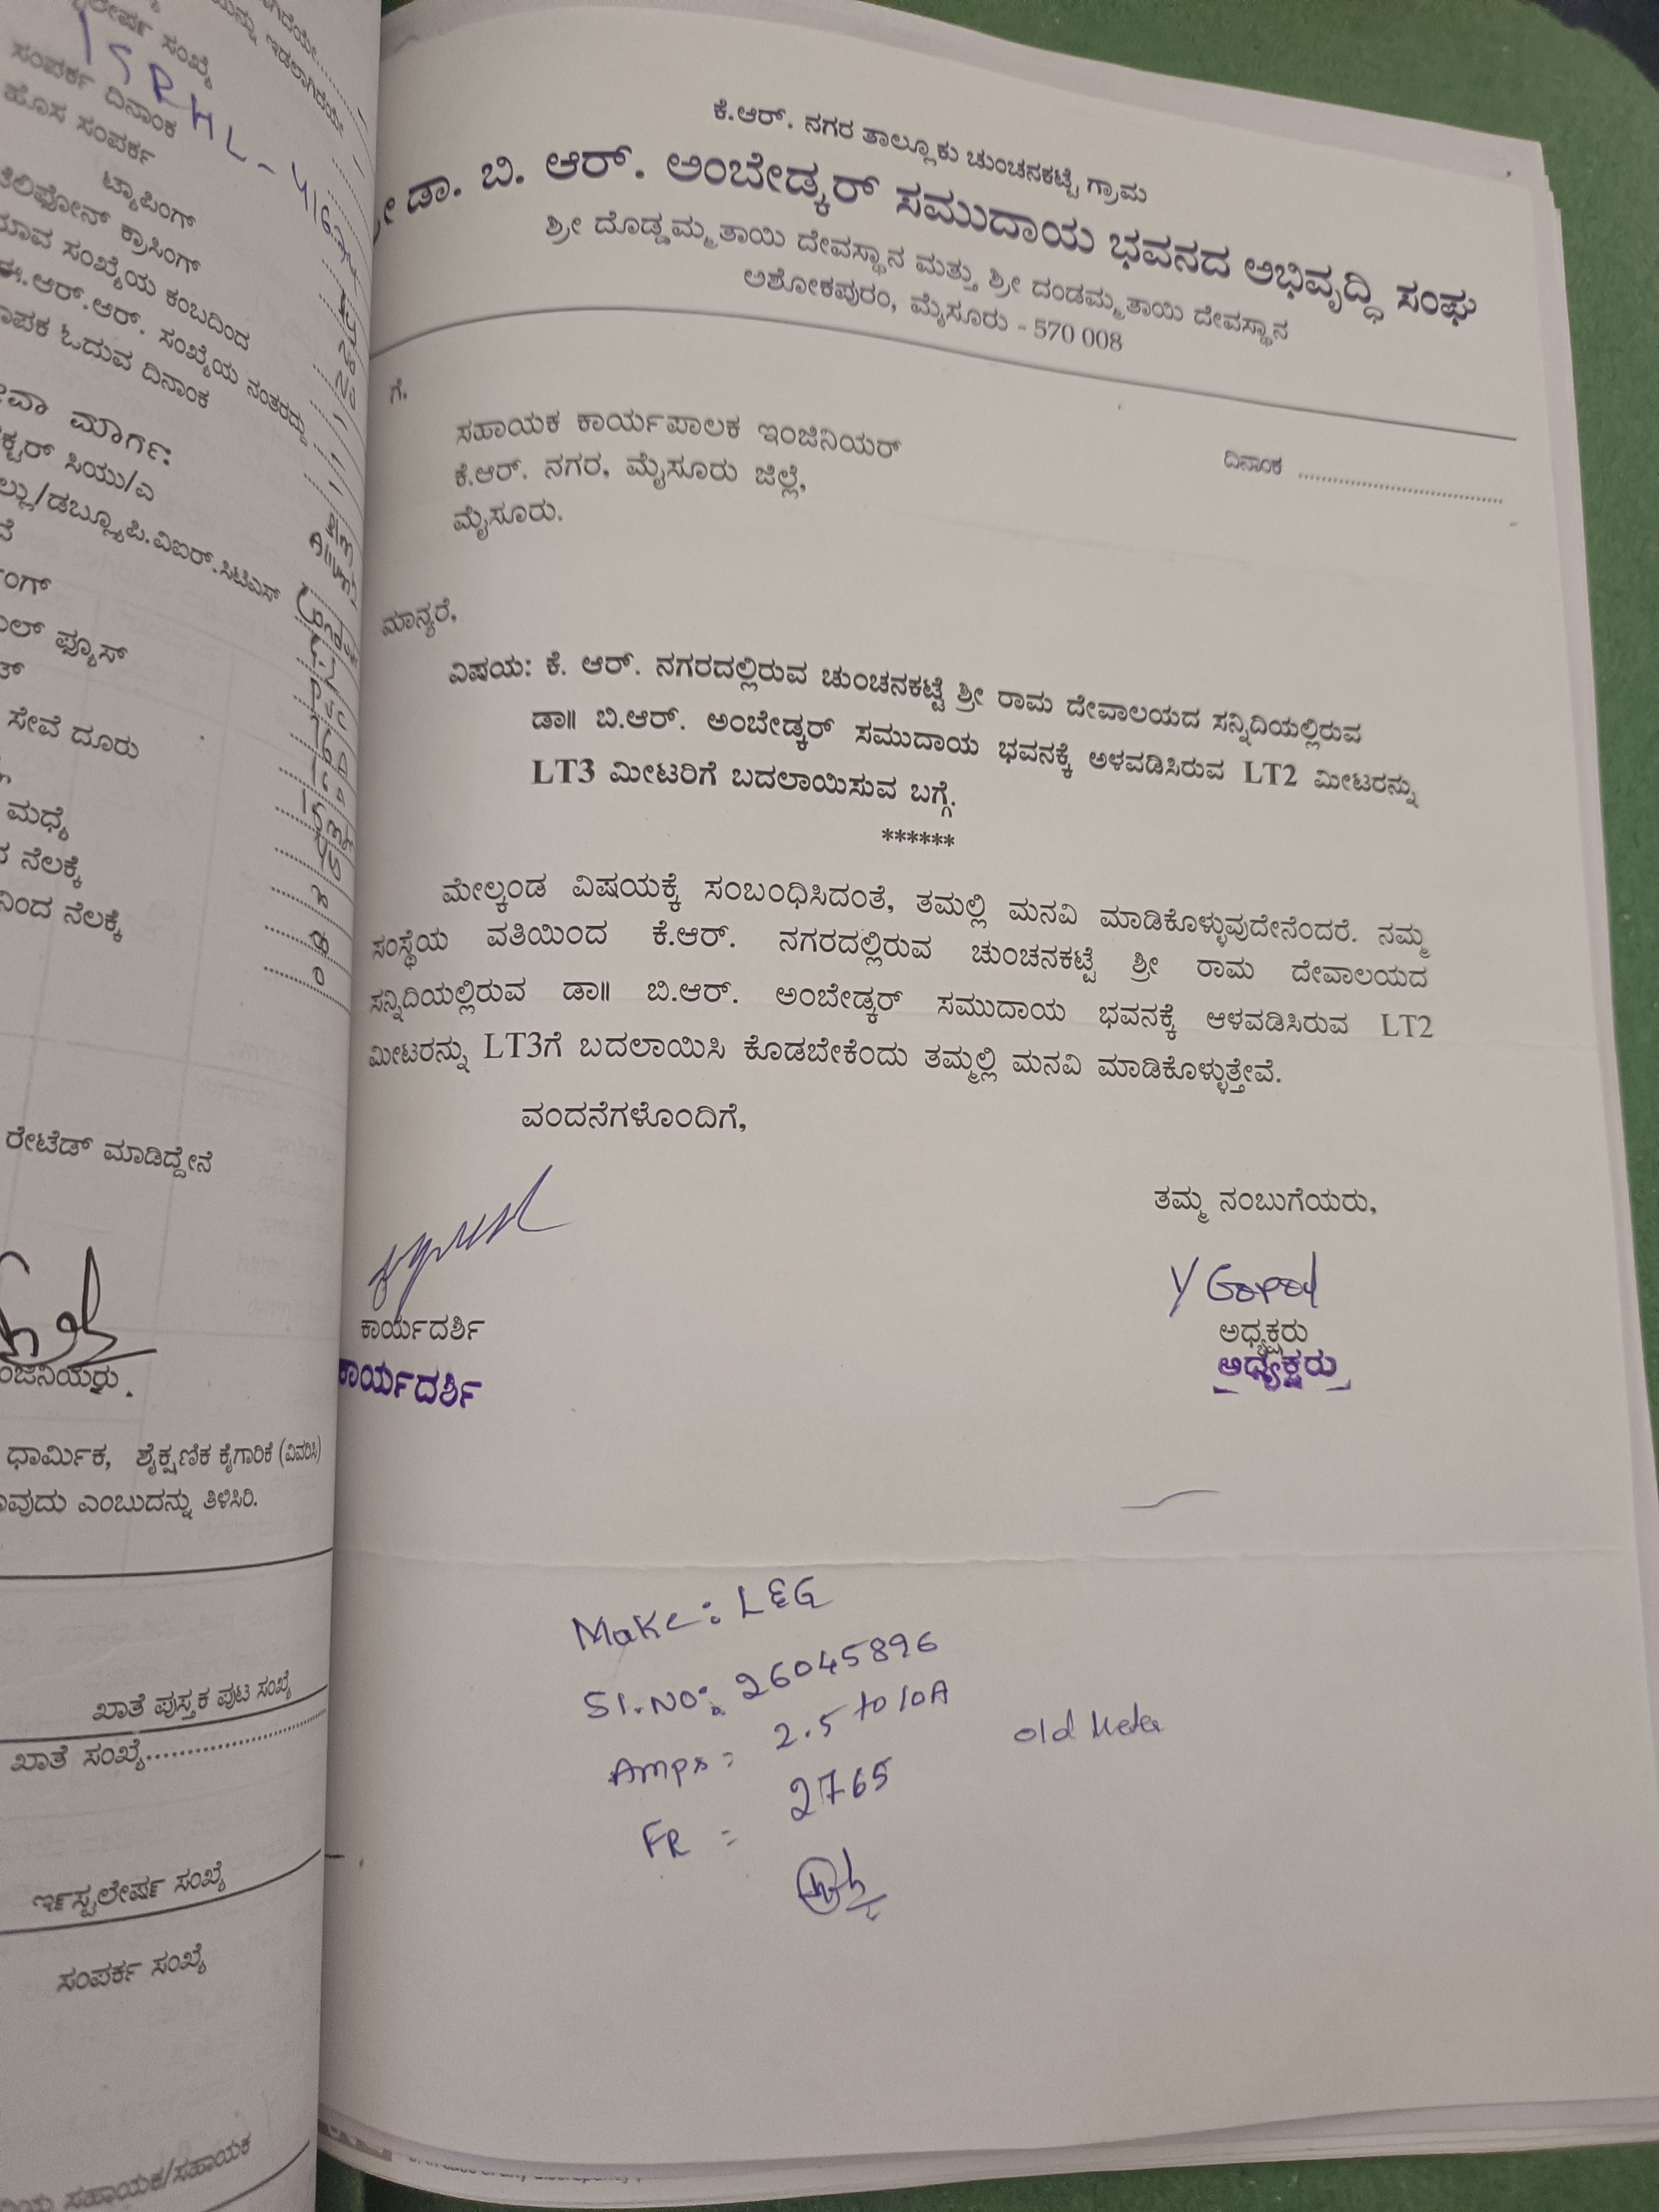 ಲೇರ್ಷ ಸಂಖ್ಯೆ
ಸಂಪರ್ಕ ದಿನಾಂಕ
ಹೊಸ ಸಂಪರ್ಕ
ಟ್ಯಾಪಿಂಗ್
ತೆಲಿಫೋನ್ ಕ್ರಾಸಿಂಗ್
ಯಾವ ಸಂಖ್ಯೆಯ ಕಂಬದಿಂದ
ಈ.ಆರ್.ಆರ್. ಸಂಖ್ಯೆಯ ನಂತರದ್ದು
ಮಾಪಕ ಓದುವ ದಿನಾಂಕ
ಸೇವಾ ಮಾರ್ಗ:
ಕ್ಟರ್ ಸಿಯು/ಎ
ಲ್ಲು/ಡಬ್ಲ್ಯೂಪಿ.ವಿಐರ್.ಸಿಟಿಎಸ್
ಂಗ್
ಲ್ ಫ್ಯೂಸ್
ಸೇವೆ ದೂರು
ಮಧ್ಯೆ
ನೆಲಕ್ಕೆ
ನಿಂದ ನೆಲಕ್ಕೆ
ರೇಟೆಡ್ ಮಾಡಿದ್ದೇನೆ
ಂಜಿನಿಯರು.
ಧಾರ್ಮಿಕ, ಶೈಕ್ಷಣಿಕ ಕೈಗಾರಿಕೆ (ವಿವರಿಸಿ)
ಾವುದು ಎಂಬುದನ್ನು ತಿಳಿಸಿರಿ.
ಖಾತೆ ಪುಸ್ತಕ ಪುಟ ಸಂಖ್ಯೆ
ಖಾತೆ ಸಂಖ್ಯೆ
ಸಂಖ್ಯೆ
ಸಂಪರ್ಕ ಸಂಖ್ಯೆ
ಸಹಾಯಕ/ಸಹಾಯಕ
ಕೆ.ಆರ್. ನಗರ ತಾಲ್ಲೂಕು ಚುಂಚನಕಟ್ಟೆ ಗ್ರಾಮ
ಡಾ. ಬಿ. ಆರ್. ಅಂಬೇಡ್ಕರ್ ಸಮುದಾಯ ಭವನದ ಅಭಿವೃದ್ಧಿ ಸಂಘ
ಶ್ರೀ ದೊಡ್ಡಮ್ಮತಾಯಿ ದೇವಸ್ಥಾನ ಮತ್ತು ಶ್ರೀ ದಂಡಮ್ಮತಾಯಿ ದೇವಸ್ಥಾನ
ಅಶೋಕಪುರಂ, ಮೈಸೂರು - 570 008
ಗೆ,
ಸಹಾಯಕ ಕಾರ್ಯಪಾಲಕ ಇಂಜಿನಿಯರ್
ಕೆ.ಆರ್. ನಗರ, ಮೈಸೂರು ಜಿಲ್ಲೆ,
ಮೈಸೂರು.
ದಿನಾಂಕ ........................................
ಮಾನ್ಯರೆ,
ವಿಷಯ: ಕೆ. ಆರ್. ನಗರದಲ್ಲಿರುವ ಚುಂಚನಕಟ್ಟೆ ಶ್ರೀ ರಾಮ ದೇವಾಲಯದ ಸನ್ನಿದಿಯಲ್ಲಿರುವ
ಡಾ|| ಬಿ.ಆರ್. ಅಂಬೇಡ್ಕರ್ ಸಮುದಾಯ ಭವನಕ್ಕೆ ಅಳವಡಿಸಿರುವ LT2 ಮೀಟರನ್ನು
LT3 ಮೀಟರಿಗೆ ಬದಲಾಯಿಸುವ ಬಗ್ಗೆ.
******
ಮೇಲ್ಕಂಡ ವಿಷಯಕ್ಕೆ ಸಂಬಂಧಿಸಿದಂತೆ, ತಮಲ್ಲಿ ಮನವಿ ಮಾಡಿಕೊಳ್ಳುವುದೇನೆಂದರೆ. ನಮ್ಮ
ಸಂಸ್ಥೆಯ ವತಿಯಿಂದ ಕೆ.ಆರ್. ನಗರದಲ್ಲಿರುವ ಚುಂಚನಕಟ್ಟೆ ಶ್ರೀ ರಾಮ ದೇವಾಲಯದ
ಸನ್ನಿದಿಯಲ್ಲಿರುವ ಡಾ|| ಬಿ.ಆರ್. ಅಂಬೇಡ್ಕರ್ ಸಮುದಾಯ ಭವನಕ್ಕೆ ಆಳವಡಿಸಿರುವ LT2
ಮೀಟರನ್ನು LT3ಗೆ ಬದಲಾಯಿಸಿ ಕೊಡಬೇಕೆಂದು ತಮ್ಮಲ್ಲಿ ಮನವಿ ಮಾಡಿಕೊಳ್ಳುತ್ತೇವೆ.
ವಂದನೆಗಳೊಂದಿಗೆ,
ತಮ್ಮ ನಂಬುಗೆಯರು,
Y Gopal
ಕಾರ್ಯದರ್ಶಿ
ಅಧ್ಯಕ್ಷರು
ಕಾರ್ಯದರ್ಶಿ
ಅಧ್ಯಕ್ಷರು
Make: L&G
Sl.No: 26045896
Amps = 2.5 to 10A
old Meter
FR = 2765